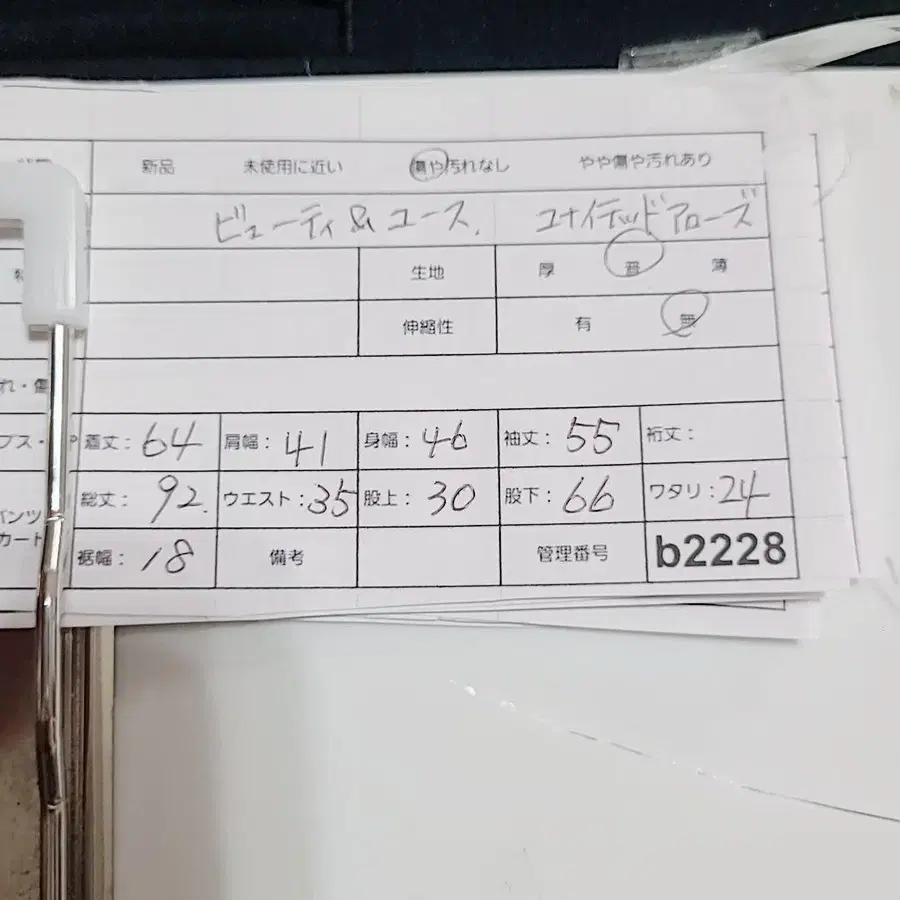 新品 未使用に近い 傷や汚れなし やや傷や汚れあり
ビューティ&ユース. ユナイテッドアローズ
生地 厚 普 薄
伸縮性 有 無
れ・傷
プス・ 着丈: 64 肩幅: 41 身幅: 46 袖丈: 55 裄丈:
パンツ 総丈: 92. ウエスト: 35 股上: 30 股下: 66 ワタリ: 24
カート 裾幅: 18 備考 管理番号 b2228